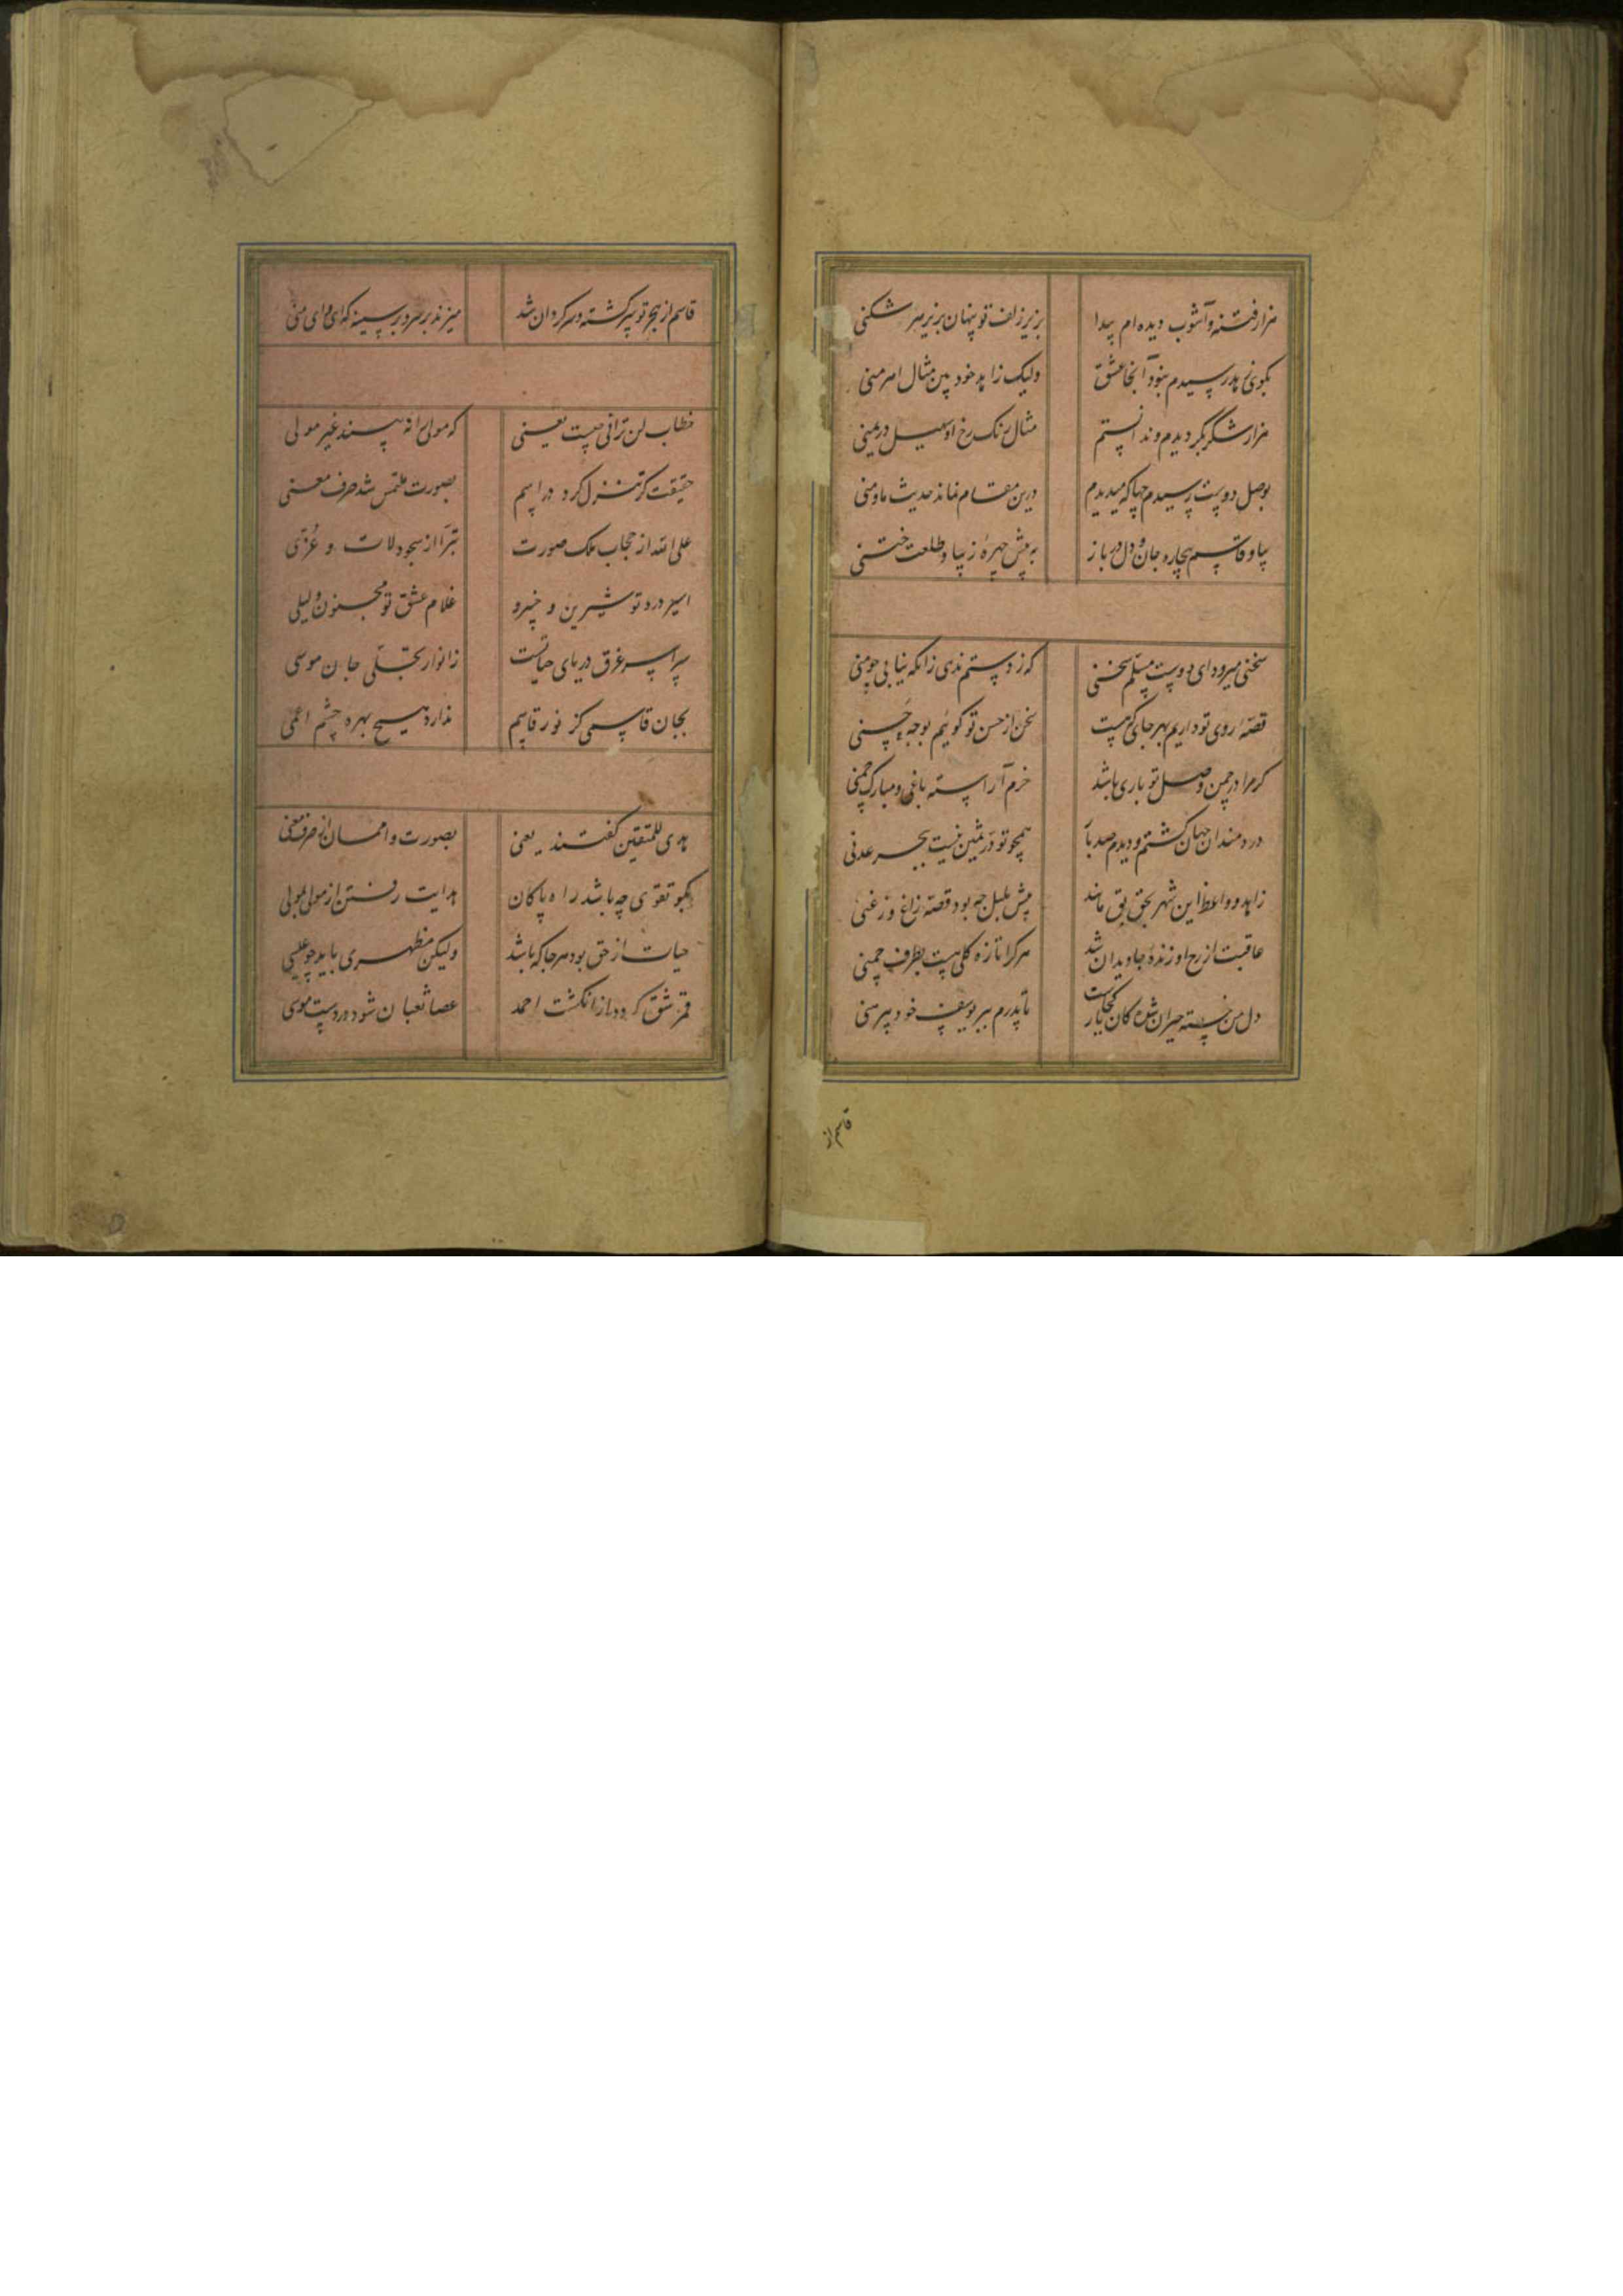 هزار فتنه و آشوب دیده ام پیدا
بزیر زلف تو پنهان بزیر هر شکنی
بکوی زهد رسیدم نبود آنجا عشق
ولیک زاهد خود بین مثال اهرمنی
هزار شکر که دیدم و ندانستم
مثال رنک رخ او سهیل در یمنی
بوصل دوست رسیدم جها که میدیدم
درین مقام نماند حدیث ما و منی
بیا و قاسم بیچاره جان و دل در باز
به پیش چهرهٔ زیبا و طلعت ختنی
سخنی میرود ای دوست مسلم سخنی
که ز دستم ندی زانکه نیابی چو منی
قصهٔ روی تو داریم بهر جای که هست
سخن از حسن تو کوئیم بوجه حسنی
کر مرا در چمن وصل تو باری باشد
خرم آراسته باغی و مبارک چمنی
دردمندان جهان کشتم و دیدم صد بار
همچو تو در ثمین نیست ببحر عدنی
زاهد و واعظ این شهر بحق بق مانند
پیش بلبل چه بود قصهٔ زاغ و زغنی
عاقبت از رخ او زندهٔ جاویدان شد
هر کرا تازه کلی هست بطرف چمنی
دل من خسته حیران شده کان یار کجاست
تا پدرم ببر یوسف خود پیرهنی
قاسم از
قاسم از هجر تو سرکشته و سرکردان شد
میزند بر سر و بر سینه که ای وای منی
خطاب لن ترانی چیست یعنی
که مولی را نه بیند غیر مولی
حقیقت کر تنزل کرد در اسم
بصورت ملتمس شد حرف معنی
علی الله از حجاب ملک صورت
تبرا از سجود لات و عزی
اسیر درد تو شیرین و خسرو
غلام عشق تو مجنون و لیلی
سراسر غرق دریای حیاتست
ز انوار تجلی جان موسی
بجان قاسمی کز نور قاسم
ندارد هیچ بهره چشم اعمی
هدی للمتقین کفتند یعنی
بصورت وا ممان از حرف معنی
بکو تقوی چه باشد راه پاکان
هدایت رفتن از مولی بمولی
حیات از حق بود هر جا که باشد
ولیکن مظهری باید چو عیسی
قمر شق کردد از انکشت احمد
عصا ثعبان شود در دست موسی